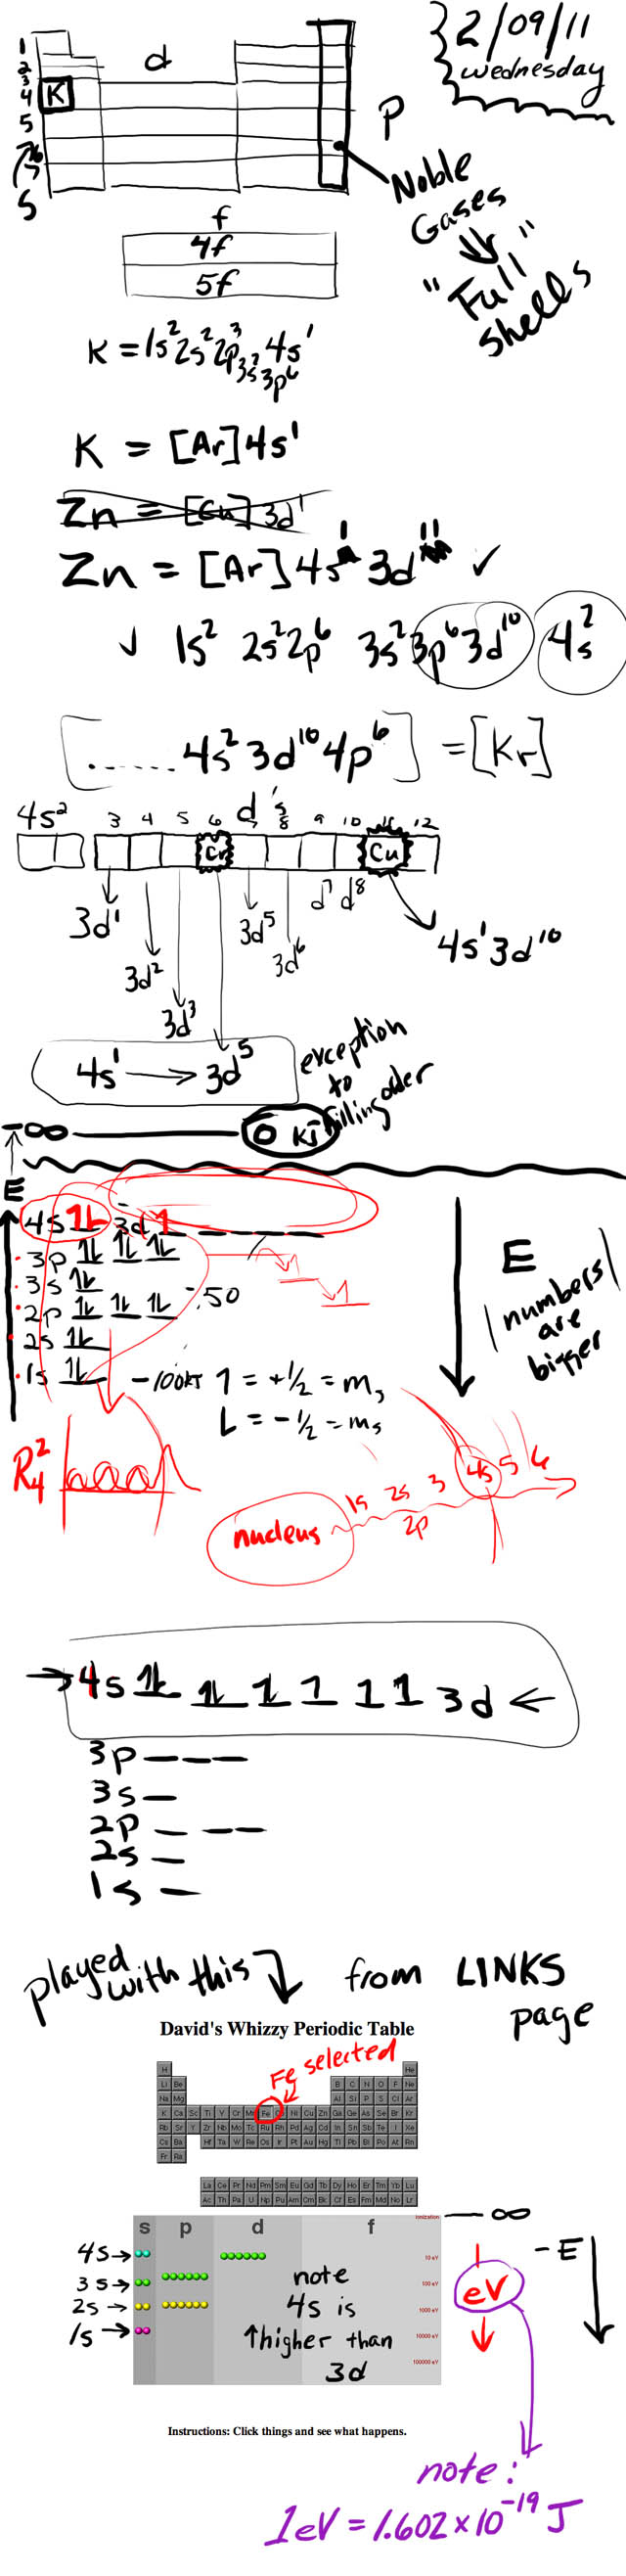 2/09/11
wednesday
1
2
3
4
5
6
7
S
K
d
P
Noble
Gases
"Full"
shells
f
4f
5f
K = 1s² 2s² 2p³ 3s² 3p⁶ 4s¹
K = [Ar] 4s¹
Zn = [Cu] 3d¹
Zn = [Ar] 4s¹ 3d¹¹ ✓
↓ 1s² 2s² 2p⁶ 3s² 3p⁶ 3d¹⁰ 4s²
[...... 4s² 3d¹⁰ 4p⁶] = [Kr]
4s² d's
3 4 5 6 7 8 9 10 11 12
Cr Cu
3d¹ 3d² 3d³ 3d⁵ 3d⁶ d⁷ d⁸
4s¹ 3d¹⁰
4s¹ → 3d⁵
exception
to
filling order
∞ 0 kJ
E
4s 1L 3d 1
3p 1L 1L 1L
3s 1L
2p 1L 1L 1L -50
2s 1L
1s 1L -100kJ
1 = +1/2 = ms
L = -1/2 = ms
E
|numbers
are
bigger|
R₄²
nucleus
1s 2s 3 4s 5 6
2p
→ 4s 1L 1L 1 1 1 1 3d ←
3p — — —
3s —
2p — — —
2s —
1s —
played
with this from LINKS
page
David's Whizzy Periodic Table
Fe selected
H He
Li Be B C N O F Ne
Na Mg Al Si P S Cl Ar
K Ca Sc Ti V Cr Mn Fe Co Ni Cu Zn Ga Ge As Se Br Kr
Rb Sr Y Zr Nb Mo Tc Ru Rh Pd Ag Cd In Sn Sb Te I Xe
Cs Ba Hf Ta W Re Os Ir Pt Au Hg Tl Pb Bi Po At Rn
Fr Ra
La Ce Pr Nd Pm Sm Eu Gd Tb Dy Ho Er Tm Yb Lu
Ac Th Pa U Np Pu Am Cm Bk Cf Es Fm Md No Lr
s p d f
Ionization
10 eV
100 eV
1000 eV
10000 eV
100000 eV
4s →
3s →
2s →
1s →
note
4s is
↑higher than
3d
— ∞
-E
eV
Instructions: Click things and see what happens.
note:
1eV = 1.602 x 10⁻¹⁹ J